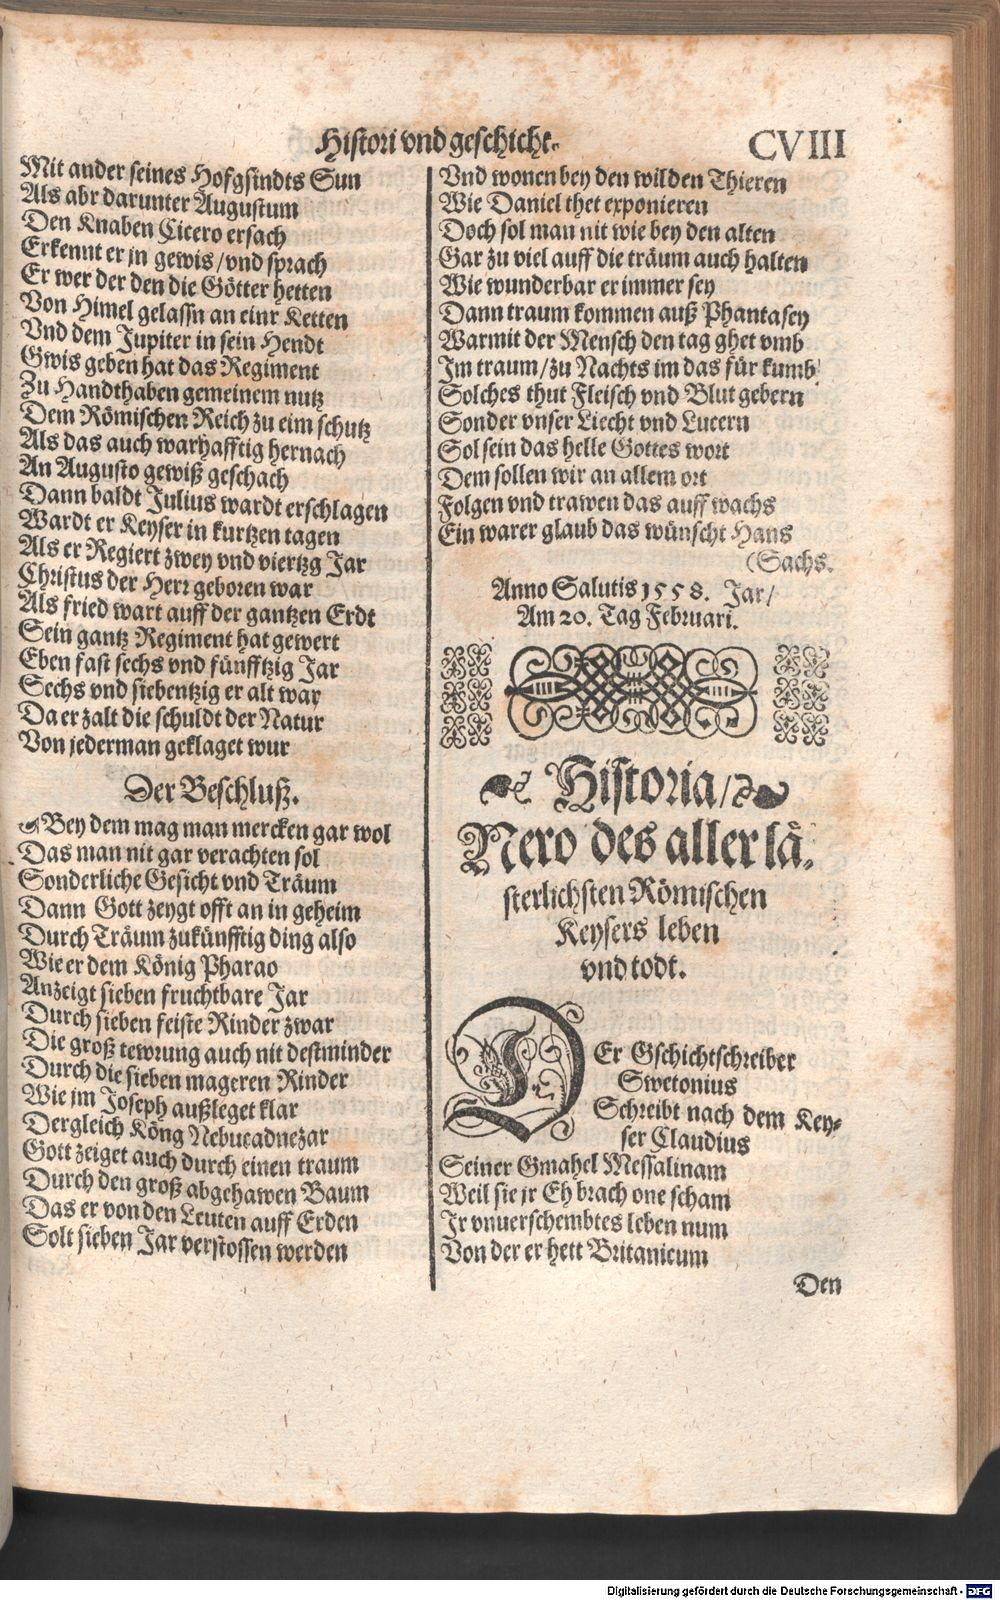 Histori vnd geschicht.
CVIII
Mit ander seines Hofgsindts Sun
Als abr darunter Augustum
Den Knaben Cicero ersach
Erkennt er jn gewis/vnd sprach
Er wer der den die Götter hetten
Von Himel gelassn an einr Ketten
Vnd dem Jupiter in sein Hendt
Gwis geben hat das Regiment
Zu Handthaben gemeinem nutz
Dem Römischen Reich zu eim schutz
Als das auch warhafftig hernach
An Augusto gewiß geschach
Dann baldt Julius wardt erschlagen
Wardt er Keyser in kurtzen tagen
Als er Regiert zwey vnd viertzg Jar
Christus der Herr geboren war
Als fried wart auff der gantzen Erdt
Sein gantz Regiment hat gewert
Eben fast sechs vnd fünfftzig Jar
Sechs vnd siebentzig er alt war
Da er zalt die schuldt der Natur
Von jederman geklaget wur
Der Beschluß.
Bey dem mag man mercken gar wol
Das man nit gar verachten sol
Sonderliche Gesicht vnd Träum
Dann Gott zeygt offt an in geheim
Durch Träum zukünfftig ding also
Wie er dem König Pharao
Anzeigt sieben fruchtbare Jar
Durch sieben feiste Rinder zwar
Die groß tewrung auch nit destminder
Durch die sieben mageren Rinder
Wie jm Joseph außleget klar
Dergleich Köng Nebucadnezar
Gott zeiget auch durch einen traum
Durch den groß abgehawen Baum
Das er von den Leuten auff Erden
Solt sieben Jar verstossen werden
Vnd wonen bey den wilden Thieren
Wie Daniel thet exponieren
Doch sol man nit wie bey den alten
Gar zu viel auff die träum auch halten
Wie wunderbar er immer sey
Dann traum kommen auß Phantasey
Warmit der Mensch den tag ghet vmb
Im traum/zu Nachts im das für kumb
Solches thut Fleisch vnd Blut gebern
Sonder vnser Liecht vnd Lucern
Sol sein das helle Gottes wort
Dem sollen wir an allem ort
Folgen vnd trawen das auff wachs
Ein warer glaub das wünscht Hans
(Sachs.
Anno Salutis 1558. Jar/
Am 20. Tag Februarī.
Historia/
Nero des aller lä-
sterlichsten Römischen
Keysers leben
vnd todt.
DEr Gschichtschreiber
Swetonius
Schreibt nach dem Key-
ser Claudius
Seiner Gmahel Messalinam
Weil sie jr Eh brach one scham
Ir vnuerschembtes leben num
Von der er hett Britanicum
Den
Digitalisierung gefördert durch die Deutsche Forschungsgemeinschaft - DFG